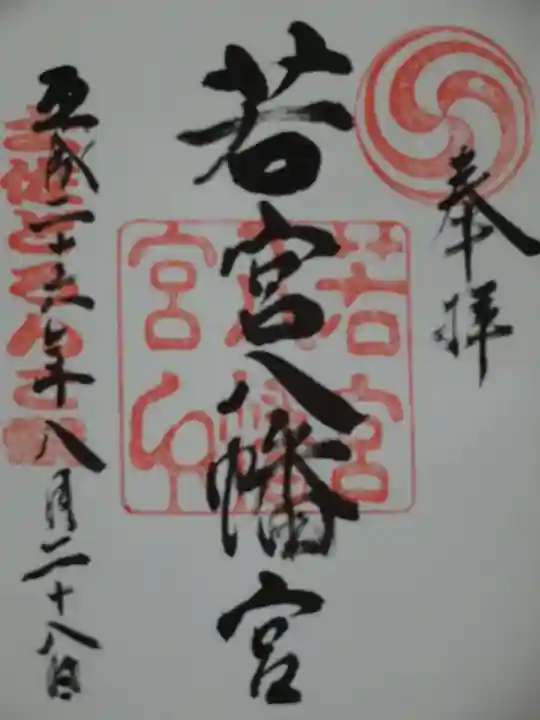 奉拝
若宮八幡宮
平成二十六年八月二十八日
若宮
八幡
宮印